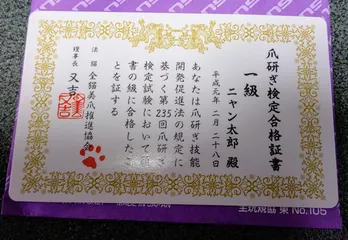 爪研ぎ検定合格証書
一級
ニャン太郎 殿
平成元年 二月 二十八日
あなたは爪研ぎ技能
開発促進法の規定に
基づく第235回爪研ぎ
検定試験において頭
書の級に合格したこ
とを証する
法猫 全猫美爪推進協会
理事長 又吉